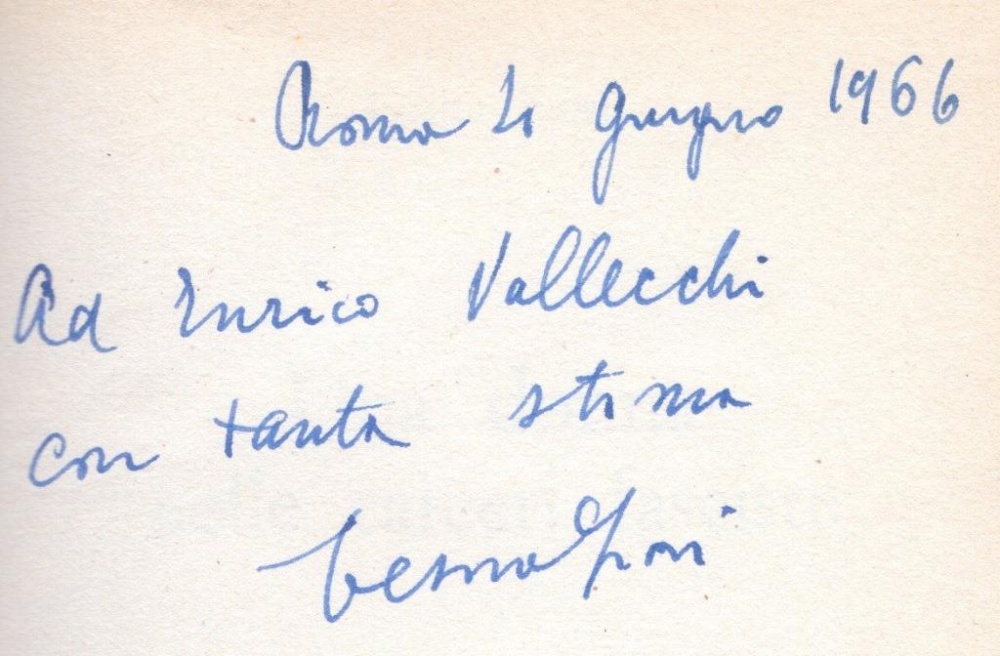 Roma giugno 1966
Ad Enrico Vallecchi
con tanta stima